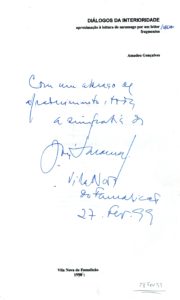 DIÁLOGOS DA INTERIORIDADE
aproximação à leitura de saramago por um leitor
fragmentos
Amadeu Gonçalves
Com um abraço de
agradecimento, e toda
a simpatia de
José Saramago
Vila Nova
de Famalicão
27 Fev. 99
Vila Nova de Famalicão
1998